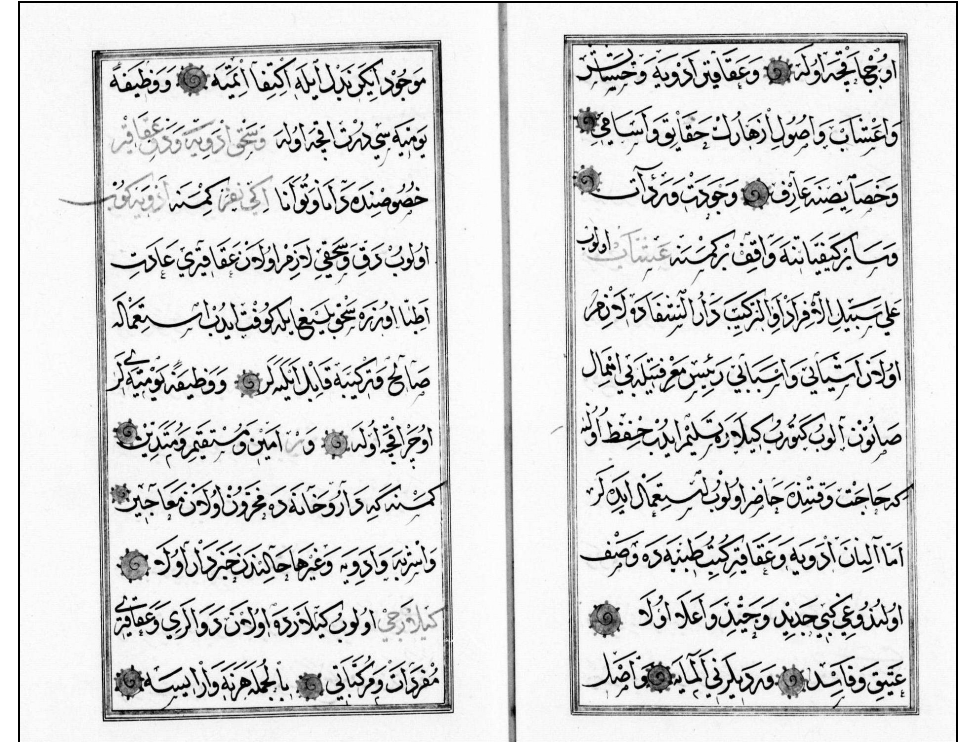 اوچر اقچه اوله وعقاقیر وادویه وحشایش
واعشاب واصول ازهارك حقایق واسامی
وخصایصنه عارف وجودت وردآت
وسایر كیفیاتنه واقف بر كمسنه عشاب اولوب
علی سبیل الافراد او التركیب دار الشفاده لازم
اولان اشیایی واسبابی رئیس معرفتیله بی اهمال
صاتون الوب كتورب كیلاره تسلیم ایدب حفظ اولنه
كه حاجت وقتنده حاضر اولوب استعمال ایده لر
اما آلنان ادویه وعقاقیر كتب طبیه ده وصف
اولندوغی كبی جدید وجید واعلا اولا
عتیق وفاسد ورديلرنی آلمایه واصل
موجود ایكن بدل ایله اكتفا اتمیه ووظیفه
یومیه سی درت اقچه اوله وسحق ادویه ودق عقاقیر
خصوصنده دانا وتوانا ایكی نفر كمسنه ادویه كوب
اولوب دق وسحقی لازم اولان عقاقیری عادت
اطبا اوزره سحق بلیغ ایله كوفت ایدب استعماله
صالح وتركیبه قابل ایلیه لر ووظیفه یومیه لری
اوچر اقچه اوله وبر امین ومستقیم ومتدین
كمسنه كه داروخانه ده مخزون اولان معاجین
واشربه وادویه وغیرها حالندن خبردار اولا
كیلارجی اولوب كیلارده اولان دوالری وعقاقیری
مفرداتی ومركباتی بالجمله هر نه وار ایسه